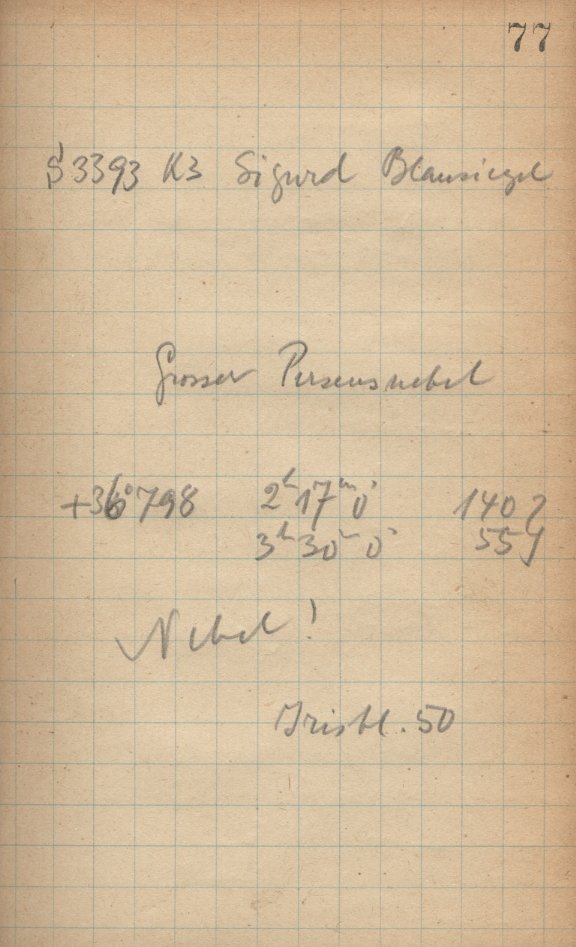 77
S 3393 K3 Sigurd Blausiegel
Grosser Perseusnebel
+36°798 2ʰ17ᵐ0ˢ 140?
3ʰ30ᵐ0ˢ 55
Nebel!
Irisbl. 50